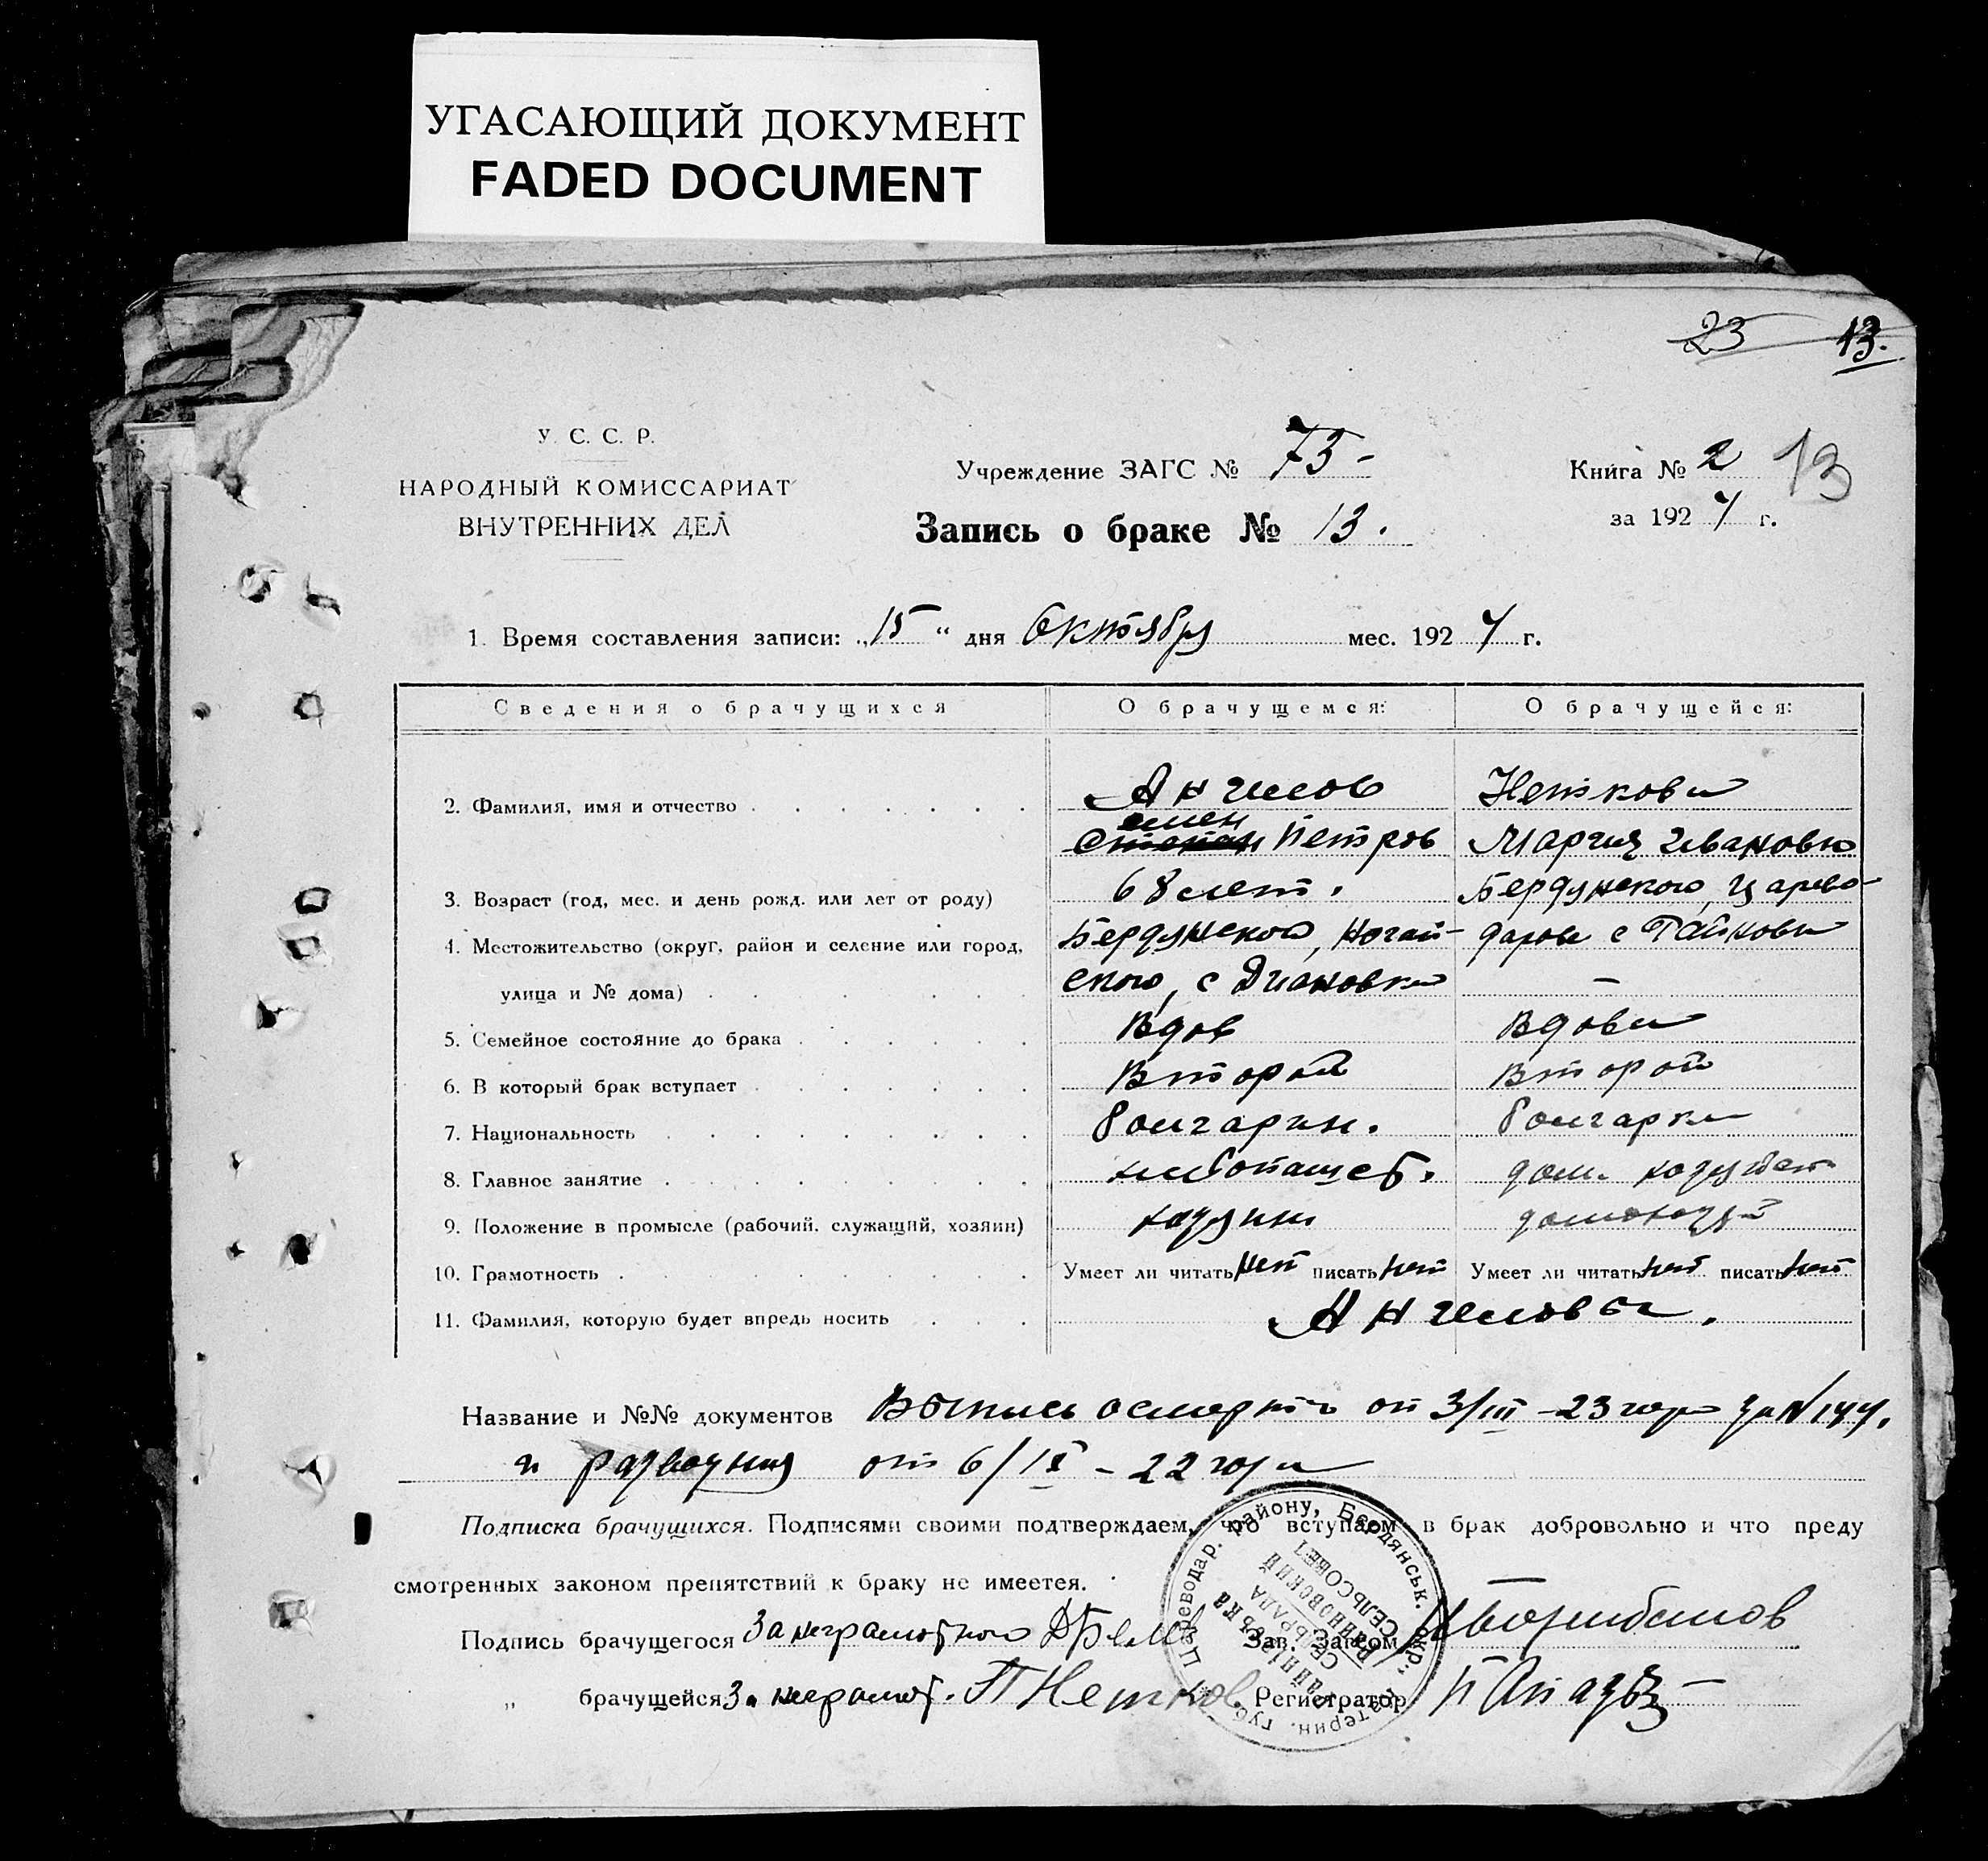 УГАСАЮЩИЙ ДОКУМЕНТ
FADED DOCUMENT
23 13.
У. С. С. Р.
НАРОДНЫЙ КОМИССАРИАТ
ВНУТРЕННИХ ДЕЛ
Учреждение ЗАГС № 73 -
Запись о браке № 13.
Книга № 2 13
за 1924 г.
1. Время составления записи: „15“ дня Октября мес. 1924 г.
Сведения о брачущихся О брачущемся: О брачущейся:
2. Фамилия, имя и отчество Ангелов Неткова
емен
Степан Петров Мария Ивановна
3. Возраст (год, мес. и день рожд. или лет от роду) 68 лет. Бердянского, Царево-
4. Местожительство (округ, район и селение или город, Бердянского, Ногай- дарова с Райновка
улица и № дома) ского, с Диановка —
5. Семейное состояние до брака Вдов Вдова
6. В который брак вступает Второй Второй
7. Национальность болгарин. болгарка
8. Главное занятие хлебопашеств. дом. хозяйст
9. Положение в промысле (рабочий, служащий, хозяин) хозяин домохозяй
10. Грамотность Умеет ли читать нет писать нет Умеет ли читать нет писать нет
11. Фамилия, которую будет впредь носить Ангеловы.
Название и №№ документов Выпись о смерти от 3/III – 23 года за N 144,
и от 6/IX – 22 года
Подписка брачущихся. Подписями своими подтверждаем, что вступаем в брак добровольно и что преду
смотренных законом препятствий к браку не имеется.
Подпись брачущегося За неграмотного Зав. Загсом
„ брачущейся За неграмот. П Нетков Регистратор
Цареводар. району, Бердянськ. окр., Катерин. губ.
СЕЛЬРАДА
РАЙНОВСКИЙ
СЕЛЬСОВЕТ